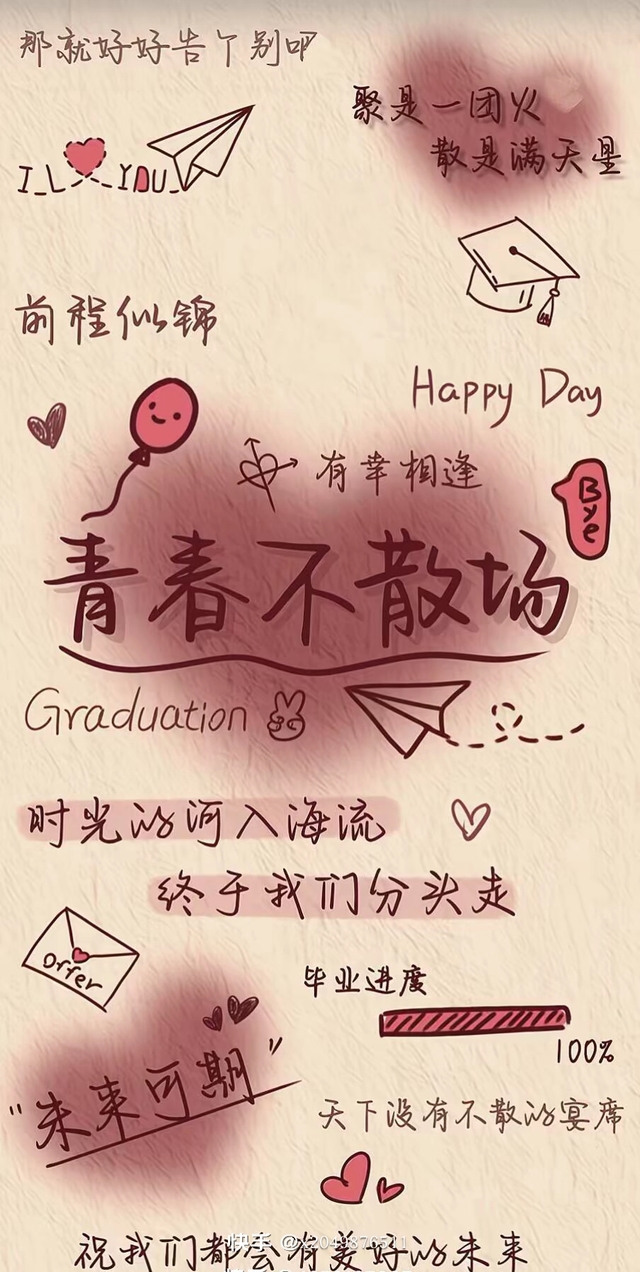 那就好好告个别吧
聚是一团火
散是满天星
I L YOU
前程似锦
Happy Day
有幸相逢
Bye
青春不散场
Graduation
时光的河入海流
终于我们分头走
offer
毕业进度
100%
"未来可期"
天下没有不散的宴席
祝我们都会有美好的未来
快手